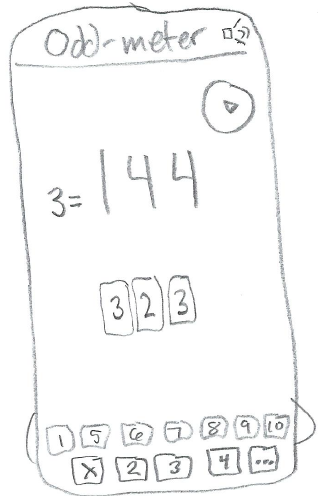 Odd-meter
3=144
3 2 3
1 5 6 7 8 9 10
X 2 3 4 ...